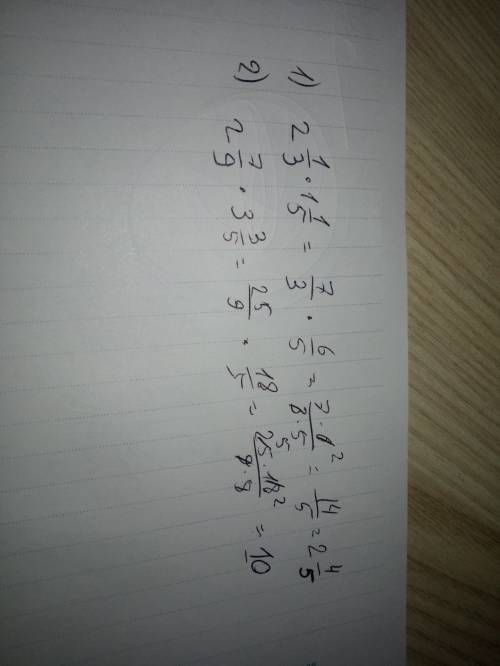 1) 2 1/3 · 1 1/5 = 7/3 · 6/5 = 7·6²/3·5 = 14/5 = 2 4/5
2) 2 7/9 · 3 3/5 = 25/9 · 18/5 = ⁵25·18²/9·5 = 10